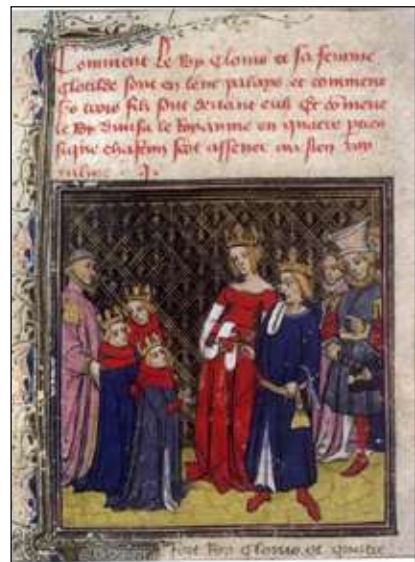 Comment le Roy Clouis et sa femme
Clotilde sont en leur palays et comment
ses trois filz sont deuant eulx Et comment
le Roy diuisa le Royaume en quatre
sique chascun
Roy Clouis et quatre